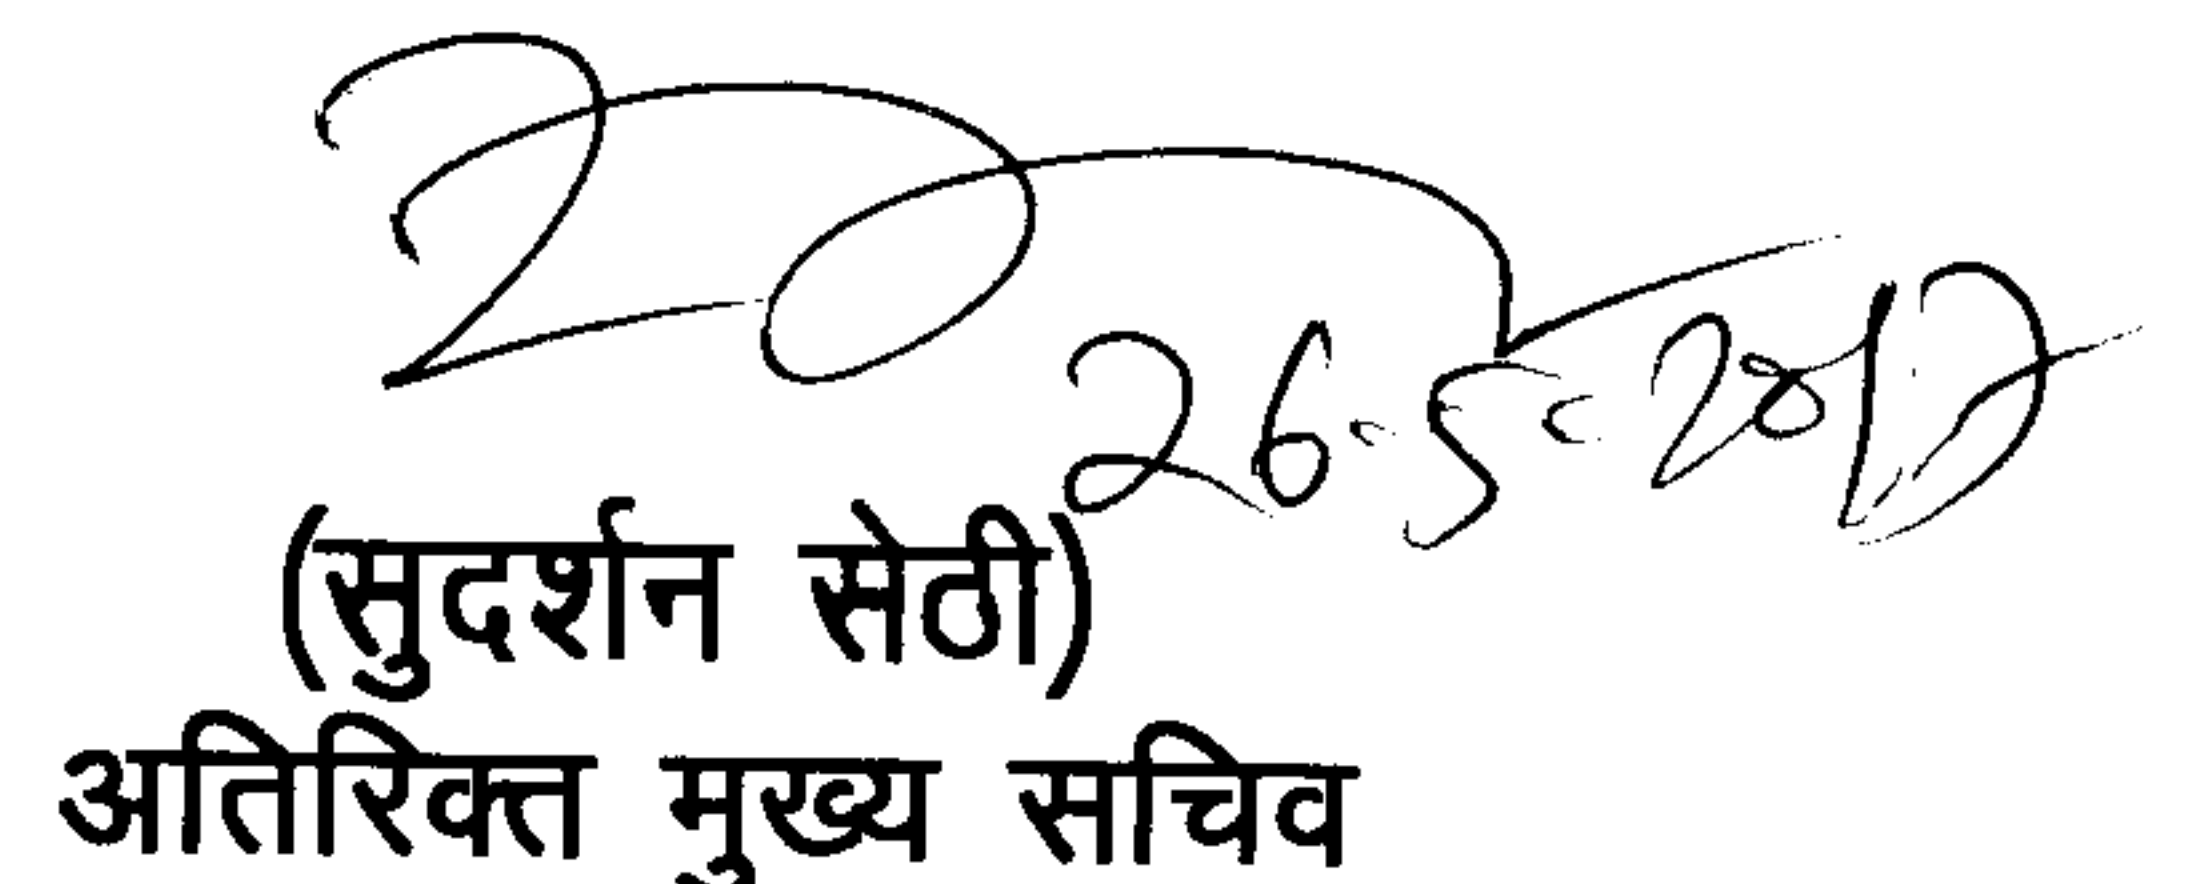 26-5-2017
(सुदर्शन सेठी)
अतिरिक्त मुख्य सचिव